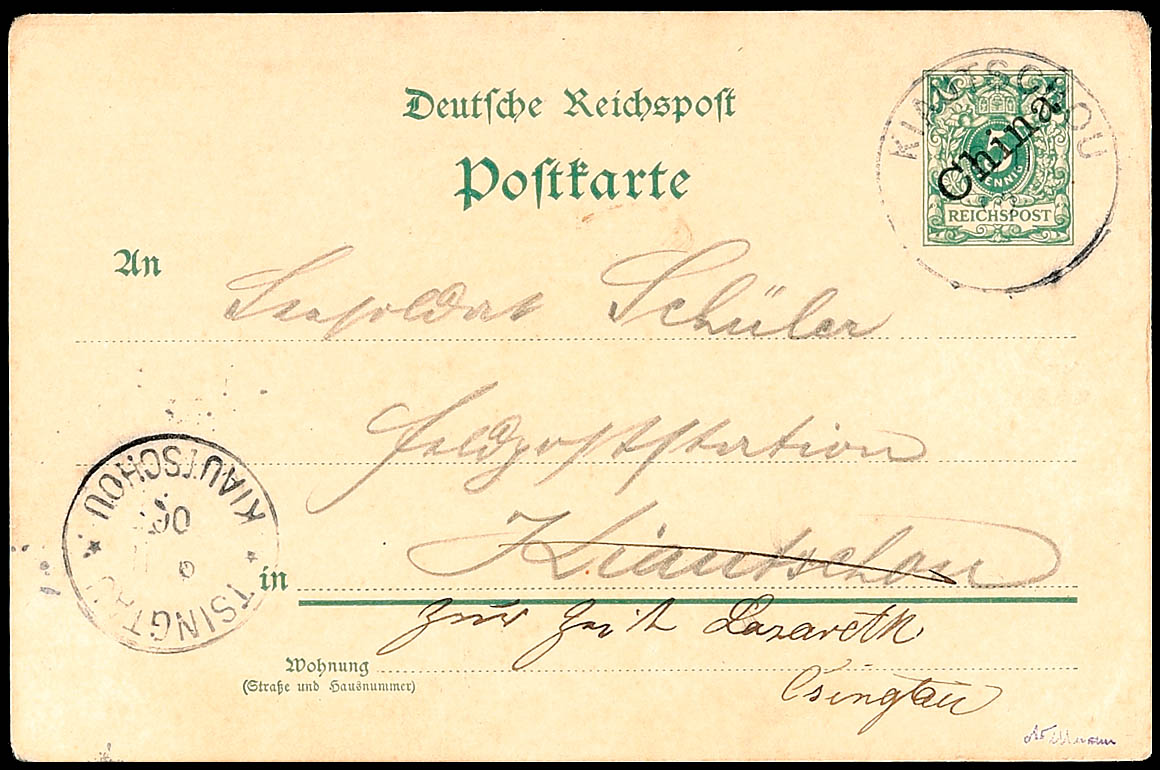 Deutsche Reichspost
Postkarte
KIAUTSCHOU
China
5
PFENNIG
REICHSPOST
An
Seesoldat Schüler
Feldpoststation
Kiautschou
in
zur Zeit Lazareth
Tsingtau
Wohnung
(Straße und Hausnummer)
KIAUTSCHOU
TSINGTAU